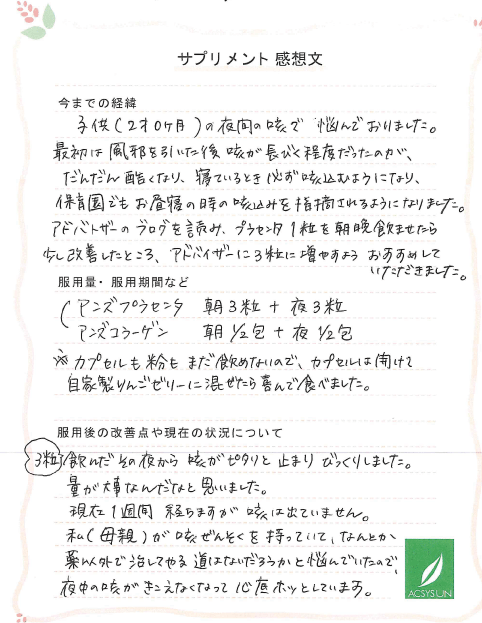 サプリメント 感想文
今までの経緯
子供(2才0ヶ月)の夜間の咳で 悩んでおりました。
最初は風邪を引いた後咳が長びく程度だったのが、
だんだん酷くなり、寝ているとき必ず咳込むようになり、
保育園でもお昼寝の時の咳込みを指摘されるようになりました。
アドバイザーのブログを読み、プラセンタ1粒を朝晩飲ませたら
少し改善したところ、アドバイザーに3粒に増やすよう おすすめして
いただきました。
服用量・服用期間など
アンズプラセンタ 朝3粒 + 夜3粒
アンズコラーゲン 朝1/2包 + 夜1/2包
※カプセルも粉もまだ飲めないので、カプセルは開けて
自家製りんごゼリーに混ぜたら喜んで食べました。
服用後の改善点や現在の状況について
3粒飲んだその夜から 咳がピタリと止まり びっくりしました。
量が大事なんだなと思いました。
現在1週間 経ちますが 咳は出ていません。
私(母親)が咳ぜんそくを持っていて、なんとか
薬以外で治してやる道はないだろうかと悩んでいたので、
夜中の咳がきこえなくなって 心底ホッとしています。
ACSYSUN